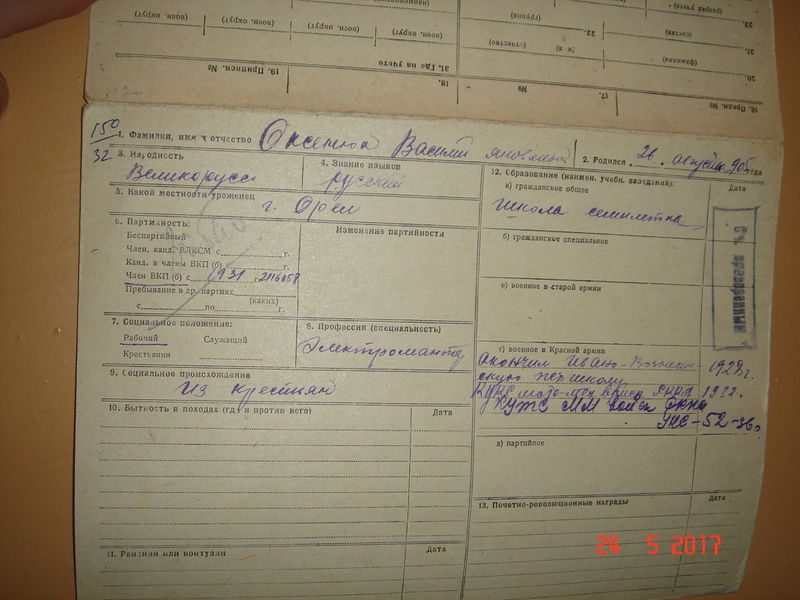 (воен. округ) (воен. округ) (воен. округ) (воен. округ)
(группа)
(разряд учета)
23.
(отчество)
(и я)
22.
(состав)
21.
19. Приписн. №
31. Где на учете
(фамилия)
20.
18.
№
17.
16. Предп. №
150
32
1. Фамилия, имя и отчество Василий
2. Родился 26 августа 905 года
3. На, одность
Великорусс
4. Знание языков
русский
5. Какой местности уроженец
г. Орел
6. Партийность:
Беспартийный
Член. канд. ВЛКСМ с г.
Канд. в члены ВКП (б) г.
Член ВКП (б) с 1931 г. 2116057
Пребывание в др. партиях
(каких)
с по г.
Изменение партийности
7. Социальное положение:
Рабочий Служащий
Крестьянин
8. Профессия (специальность)
Электромонтер
9. Социальное происхождение
из крестьян
10. Бытность в походах (где и против кого) Дата
11. Ранения или контузии Дата
12. Образование (наимен. учебн. заведения): Дата
а) гражданское общее
Школа семилетка
б) гражданское специальное
в) военное в старой армии
г) военное в Красной армии
Окончил Ивано-Вознесен-
скую школу 1928 г.
РККА 1932.
КУКС ММ войск РККА
УНС-52-36г
д) партийное
13. Почетно-революционные награды Дата
24 5 2017